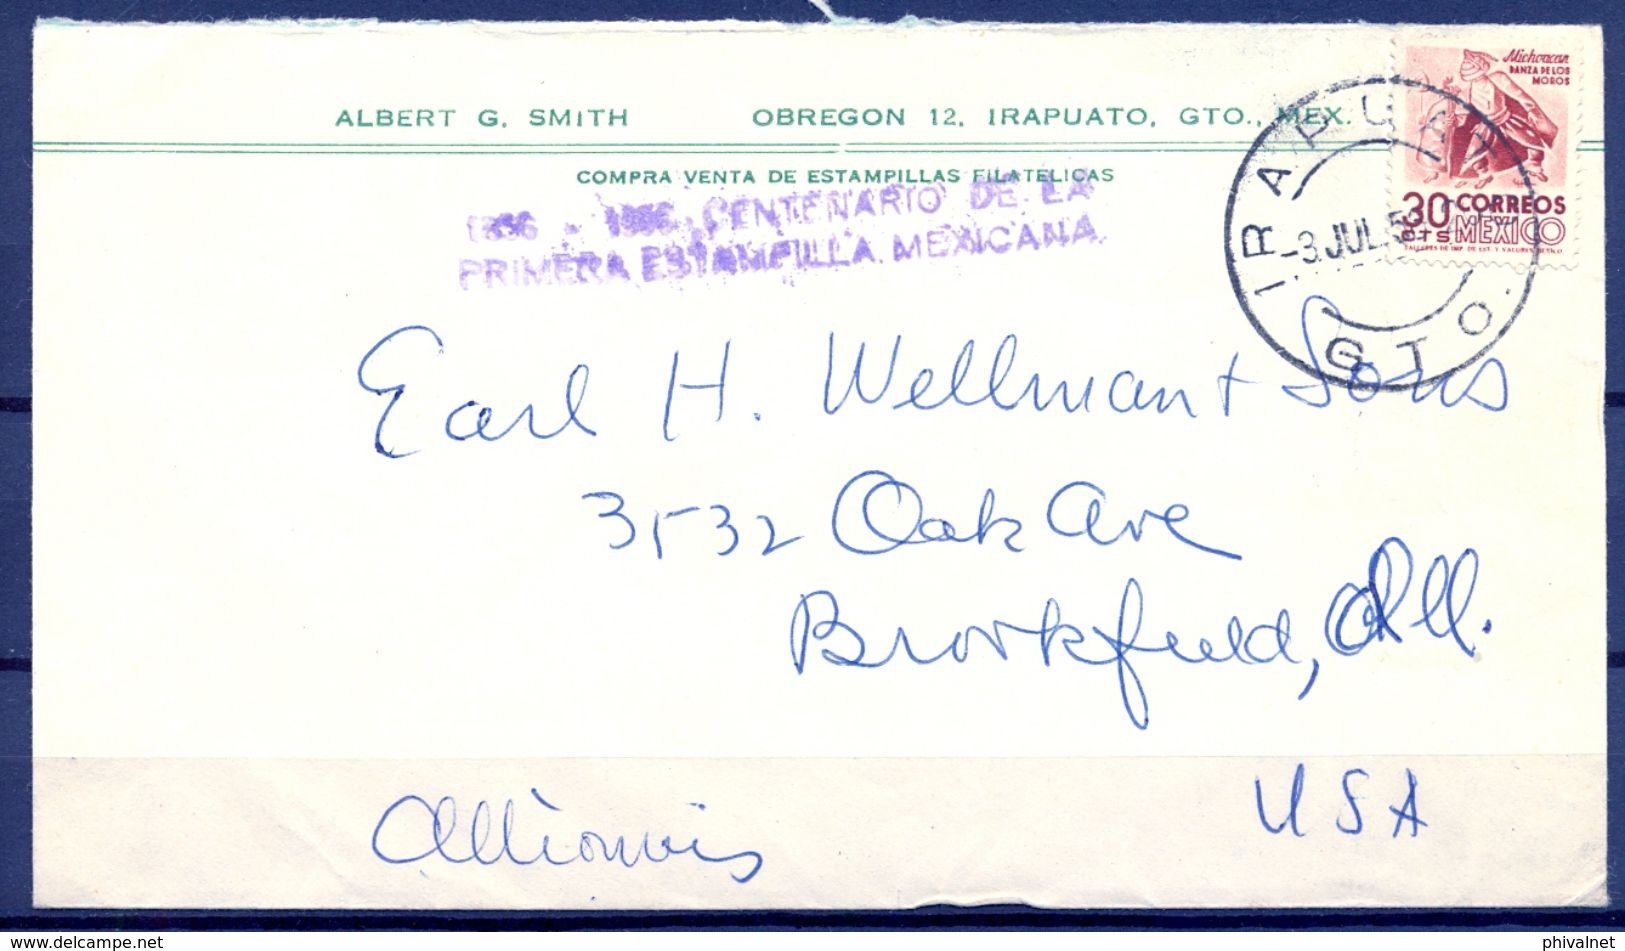 ALBERT G. SMITH OBREGON 12, IRAPUATO, GTO., MEX.
COMPRA VENTA DE ESTAMPILLAS FILATELICAS
1856 - 1956 CENTENARIO DE LA
PRIMERA ESTAMPILLA MEXICANA
Michoacan
DANZA DE LOS
MOROS
30 CORREOS
CTS MEXICO
TALLERES DE IMP. DE EST. Y VALORES-MEXICO.
IRAPUATO
3 JUL
GTO.
Earl H. Wellman + Sons
3532 Oak Ave
Brookfield, Ill.
USA
delcampe.net
phivalnet